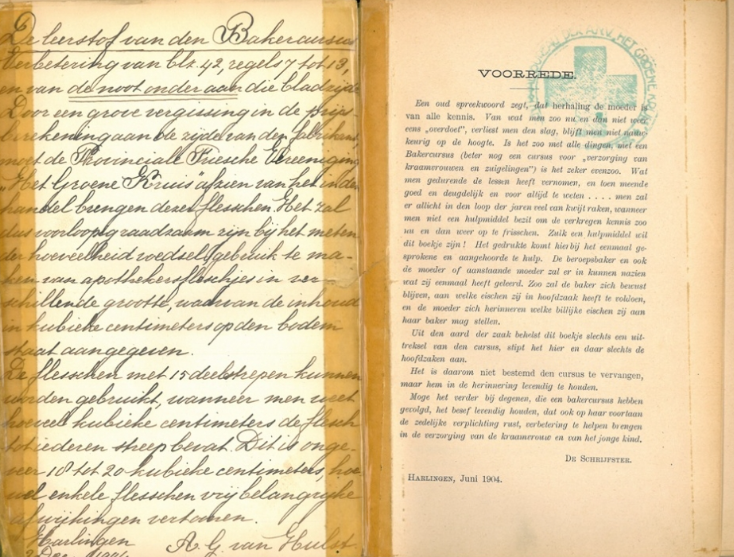 De leerstof van den Bakercursus
Verbetering van blz. 42, regels 7 tot 13,
en van de noot onder aan die bladzijde
Door een grove vergissing in de prijs
berekening aan de zijde van den fabrikant
moet de Provinciale Friesche Vereeniging
"Het Groene Kruis" afzien van het in den
handel brengen dezer flesschen. Het zal
dus voorloopig raadzaam zijn bij het meten
der hoeveelheid voedsel, gebruik te ma-
ken van apothekersfleschjes in ver-
schillende grootte, waarvan de inhoud
in kubieke centimeters op den bodem
staat aangegeven.
De flesschen met 15 deelstrepen kunnen
worden gebruikt, wanneer men weet
hoeveel kubieke centimeters de flesch
tot iederen streep bevat. Dit is onge-
veer 18 tot 20 kubieke centimeters, hoe
wel enkele flesschen vrij belangrijke
afwijkingen vertoonen.
Harlingen
Dec. 1904 A. G. van Hulst
VOORREDE.
Een oud spreekwoord zegt, dat herhaling de moeder is
van alle kennis. Van wat men zoo nu en dan niet weer
eens „overdoet", verliest men den slag, blijft men niet nauw-
keurig op de hoogte. Is het zoo met alle dingen, met een
Bakercursus (beter nog een cursus voor „verzorging van
kraamvrouwen en zuigelingen") is het zeker evenzoo. Wat
men gedurende de lessen heeft vernomen, en toen meende
goed en deugdelijk en voor altijd te weten . . . . men zal
er allicht in den loop der jaren veel van kwijt raken, wanneer
men niet een hulpmiddel bezit om de verkregen kennis zoo
nu en dan weer op te frisschen. Zulk een hulpmiddel wil
dit boekje zijn! Het gedrukte komt hierbij het eenmaal ge-
sprokene en aangehoorde te hulp. De beroepsbaker en ook
de moeder of aanstaande moeder zal er in kunnen nazien
wat zij eenmaal heeft geleerd. Zoo zal de baker zich bewust
blijven, aan welke eischen zij in hoofdzaak heeft te voldoen,
en de moeder zich herinneren welke billijke eischen zij aan
haar baker mag stellen.
Uit den aard der zaak behelst dit boekje slechts een uit-
treksel van den cursus, stipt het hier en daar slechts de
hoofdzaken aan.
Het is daarom niet bestemd den cursus te vervangen,
maar hem in de herinnering levendig te houden.
Moge het verder bij degenen, die een bakercursus hebben
gevolgd, het besef levendig houden, dat ook op haar voortaan
de zedelijke verplichting rust, verbetering te helpen brengen
in de verzorging van de kraamvrouw en van het jonge kind.
DE SCHRIJFSTER.
HARLINGEN, Juni 1904.
HET GROENE